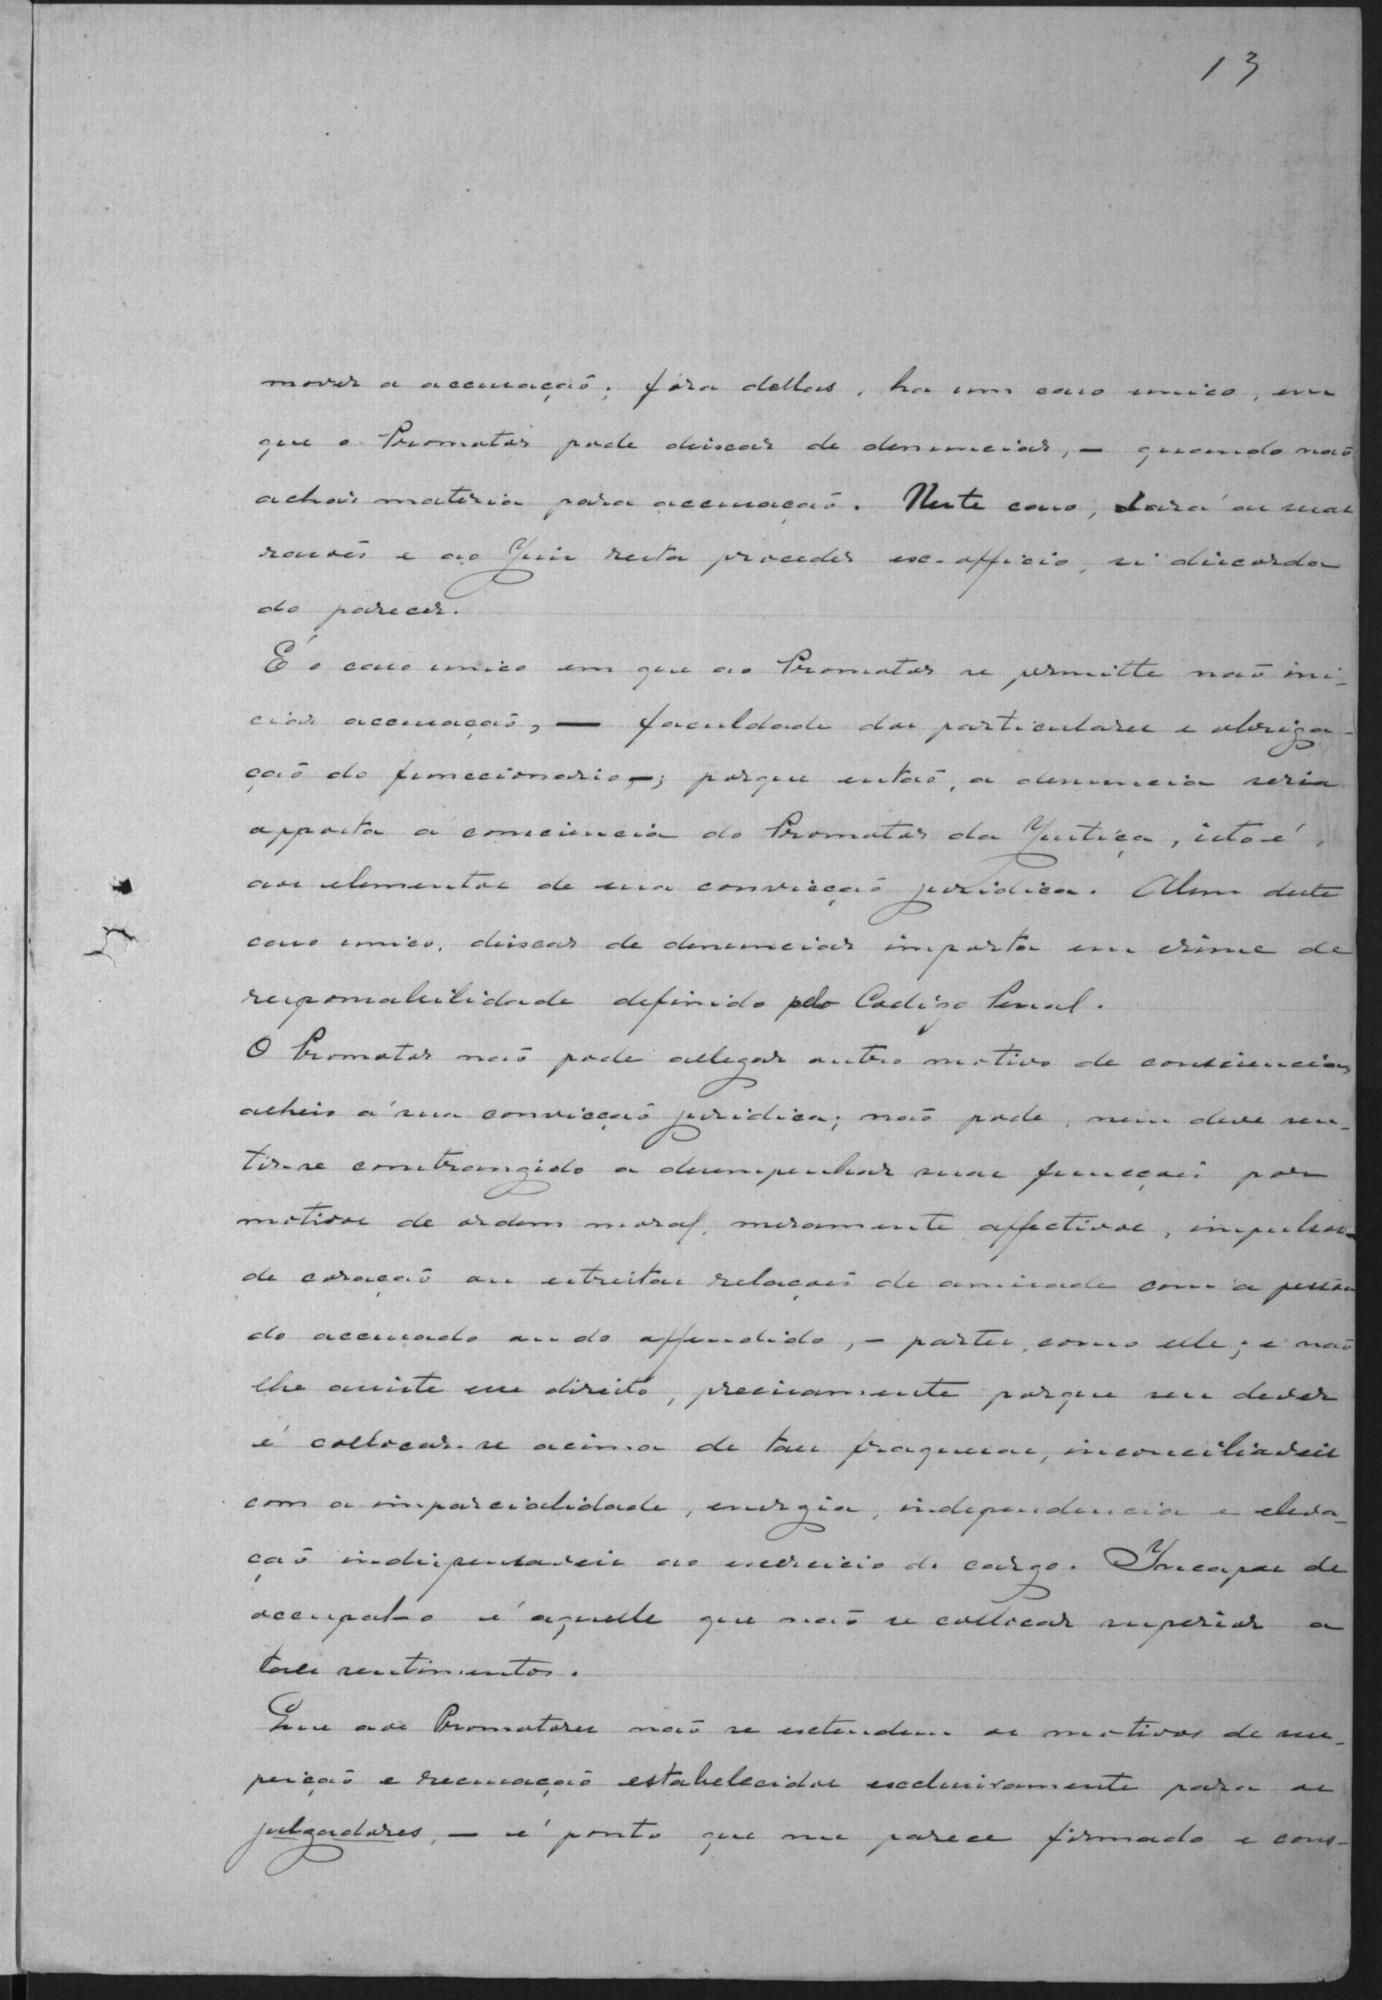 13
mover a accusação; fóra dellas, ha um caso unico, em
que o Promotor pode deixar de denunciar, — quando não
achar materia para accusação. Neste caso, dará as suas
rasões e ao Juiz resta proceder ex-officio, si discorda
do parecer.
É o caso unico em que ao Promotor se permitte não ini-
ciar accusação, — faculdade dos particulares e obriga-
ção do funccionario —; porque então, a denuncia seria
opposta á consciencia do Promotor da Justiça, isto é,
aos elementos de sua convicção juridica. Alem deste
caso unico, deixar de denunciar importa em crime de
responsabilidade definido pelo Codigo Penal.
O Promotor não pode allegar outro motivo de consciencia,
alheio á sua convicção juridica; não pode, nem deve sen-
tir-se constrangido a desempenhar suas funcções por
motivos de ordem moral, meramente affectivos, impulsos
de coração ou estreitas relações de amisade com a pessôa
do accusado ou do offendido, — partes, como elle; e não
lhe assiste esse direito, precisamente porque seu dever
é collocar-se acima de taes fraquesas, inconciliaveis
com a imparcialidade, energia, independencia e eleva-
ção indispensaveis ao exercicio do cargo. Incapaz de
occupal-o é aquelle que não se collocar superior a
taes sentimentos.
Que aos Promotores não se extendem os motivos de sus-
peição e recusação estabelecidos exclusivamente para os
julgadores, — é ponto que me parece firmado e cons-